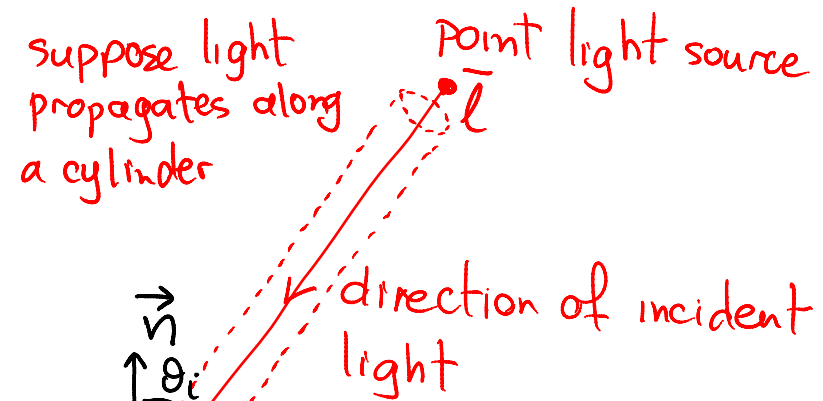 suppose light
propagates along
a cylinder
point light source
l̅
direction of incident
light
n⃗
θᵢ